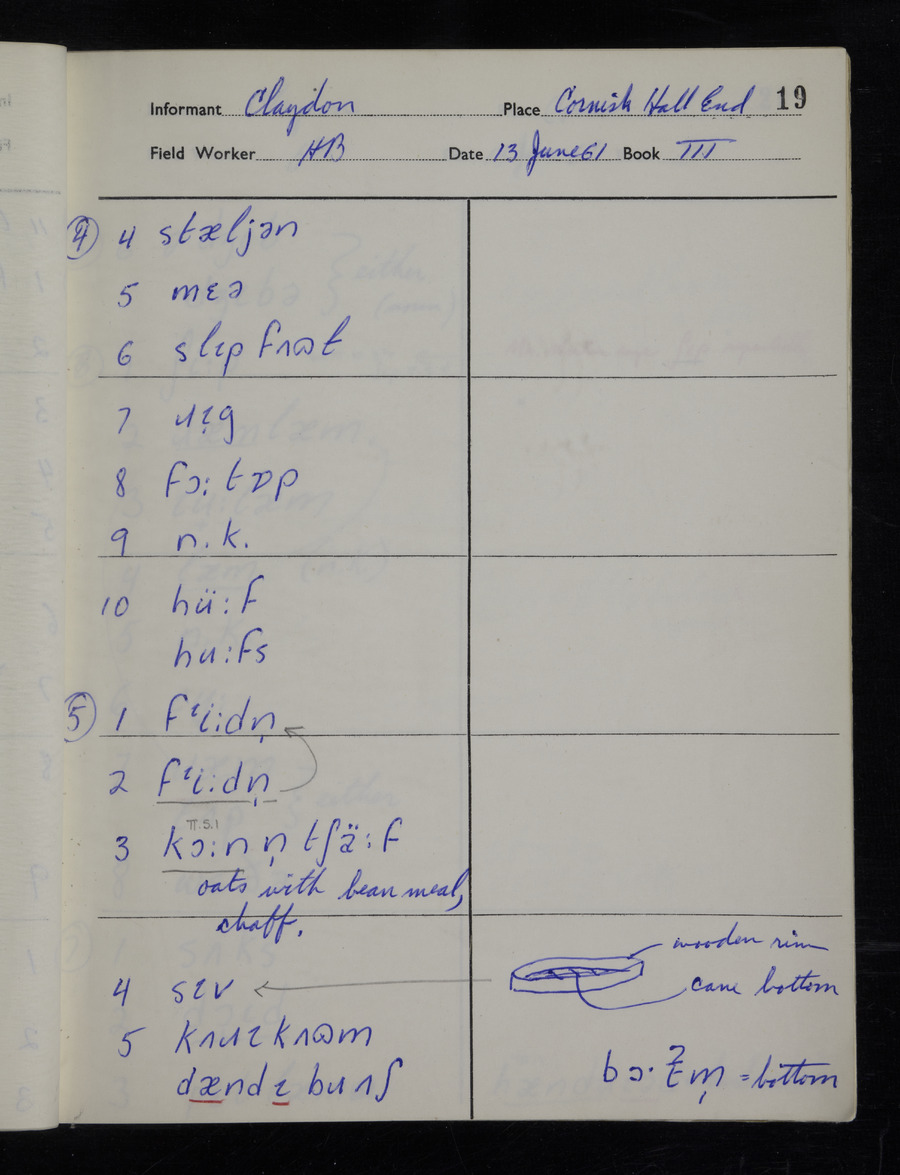 Informant Claydon Place Cornish Hall End 19
Field Worker HB Date 13 June 61 Book III
④ 4 stæljən
5 mɛə
6 slɪp fɹʌʊt
7 ɹɪg
8 fɔːtɒp
9 n.k.
10 hüːf
huːfs
⑤ 1 fᶦiːdn̩
2 fᶦiːdn̩
3 kɔːn n̩ tʃäːf
II.5.1
oats with bean meal,
chaff.
wooden rim
4 sɪv
cane bottom
5 kʌɹɪkʌʊm
dændɪ bɹʌʃ
bɔ·ʔt̬m̩ = bottom